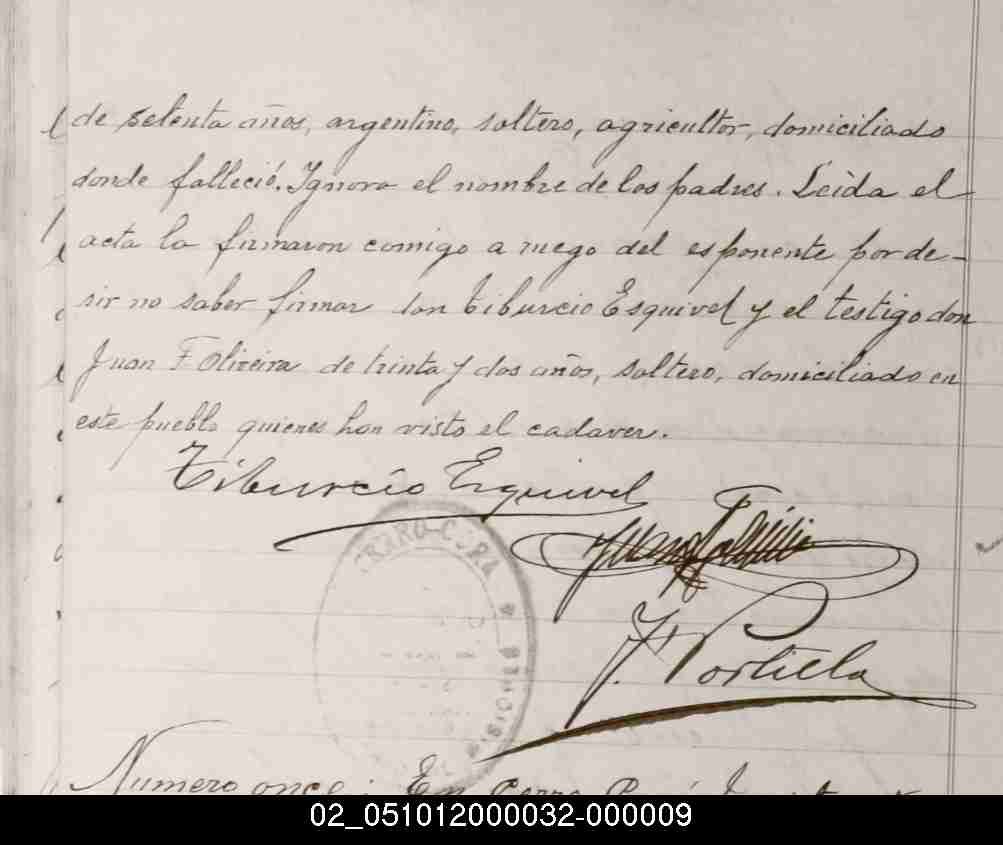 de setenta años, argentino, soltero, agricultor, domiciliado
donde falleció. Ignora el nombre de los padres. Leida el
acta la firmaron comigo a ruego del esponente por de-
sir no saber firmar don Tiburcio Esquivel y el testigo don
Juan F. Oliveira de trinta y dos años, soltero, domiciliado en
este pueblo quienes han visto el cadaver.
Tiburcio Esquivel
J. Portela
Numero once. En Cerro
02_051012000032-000009